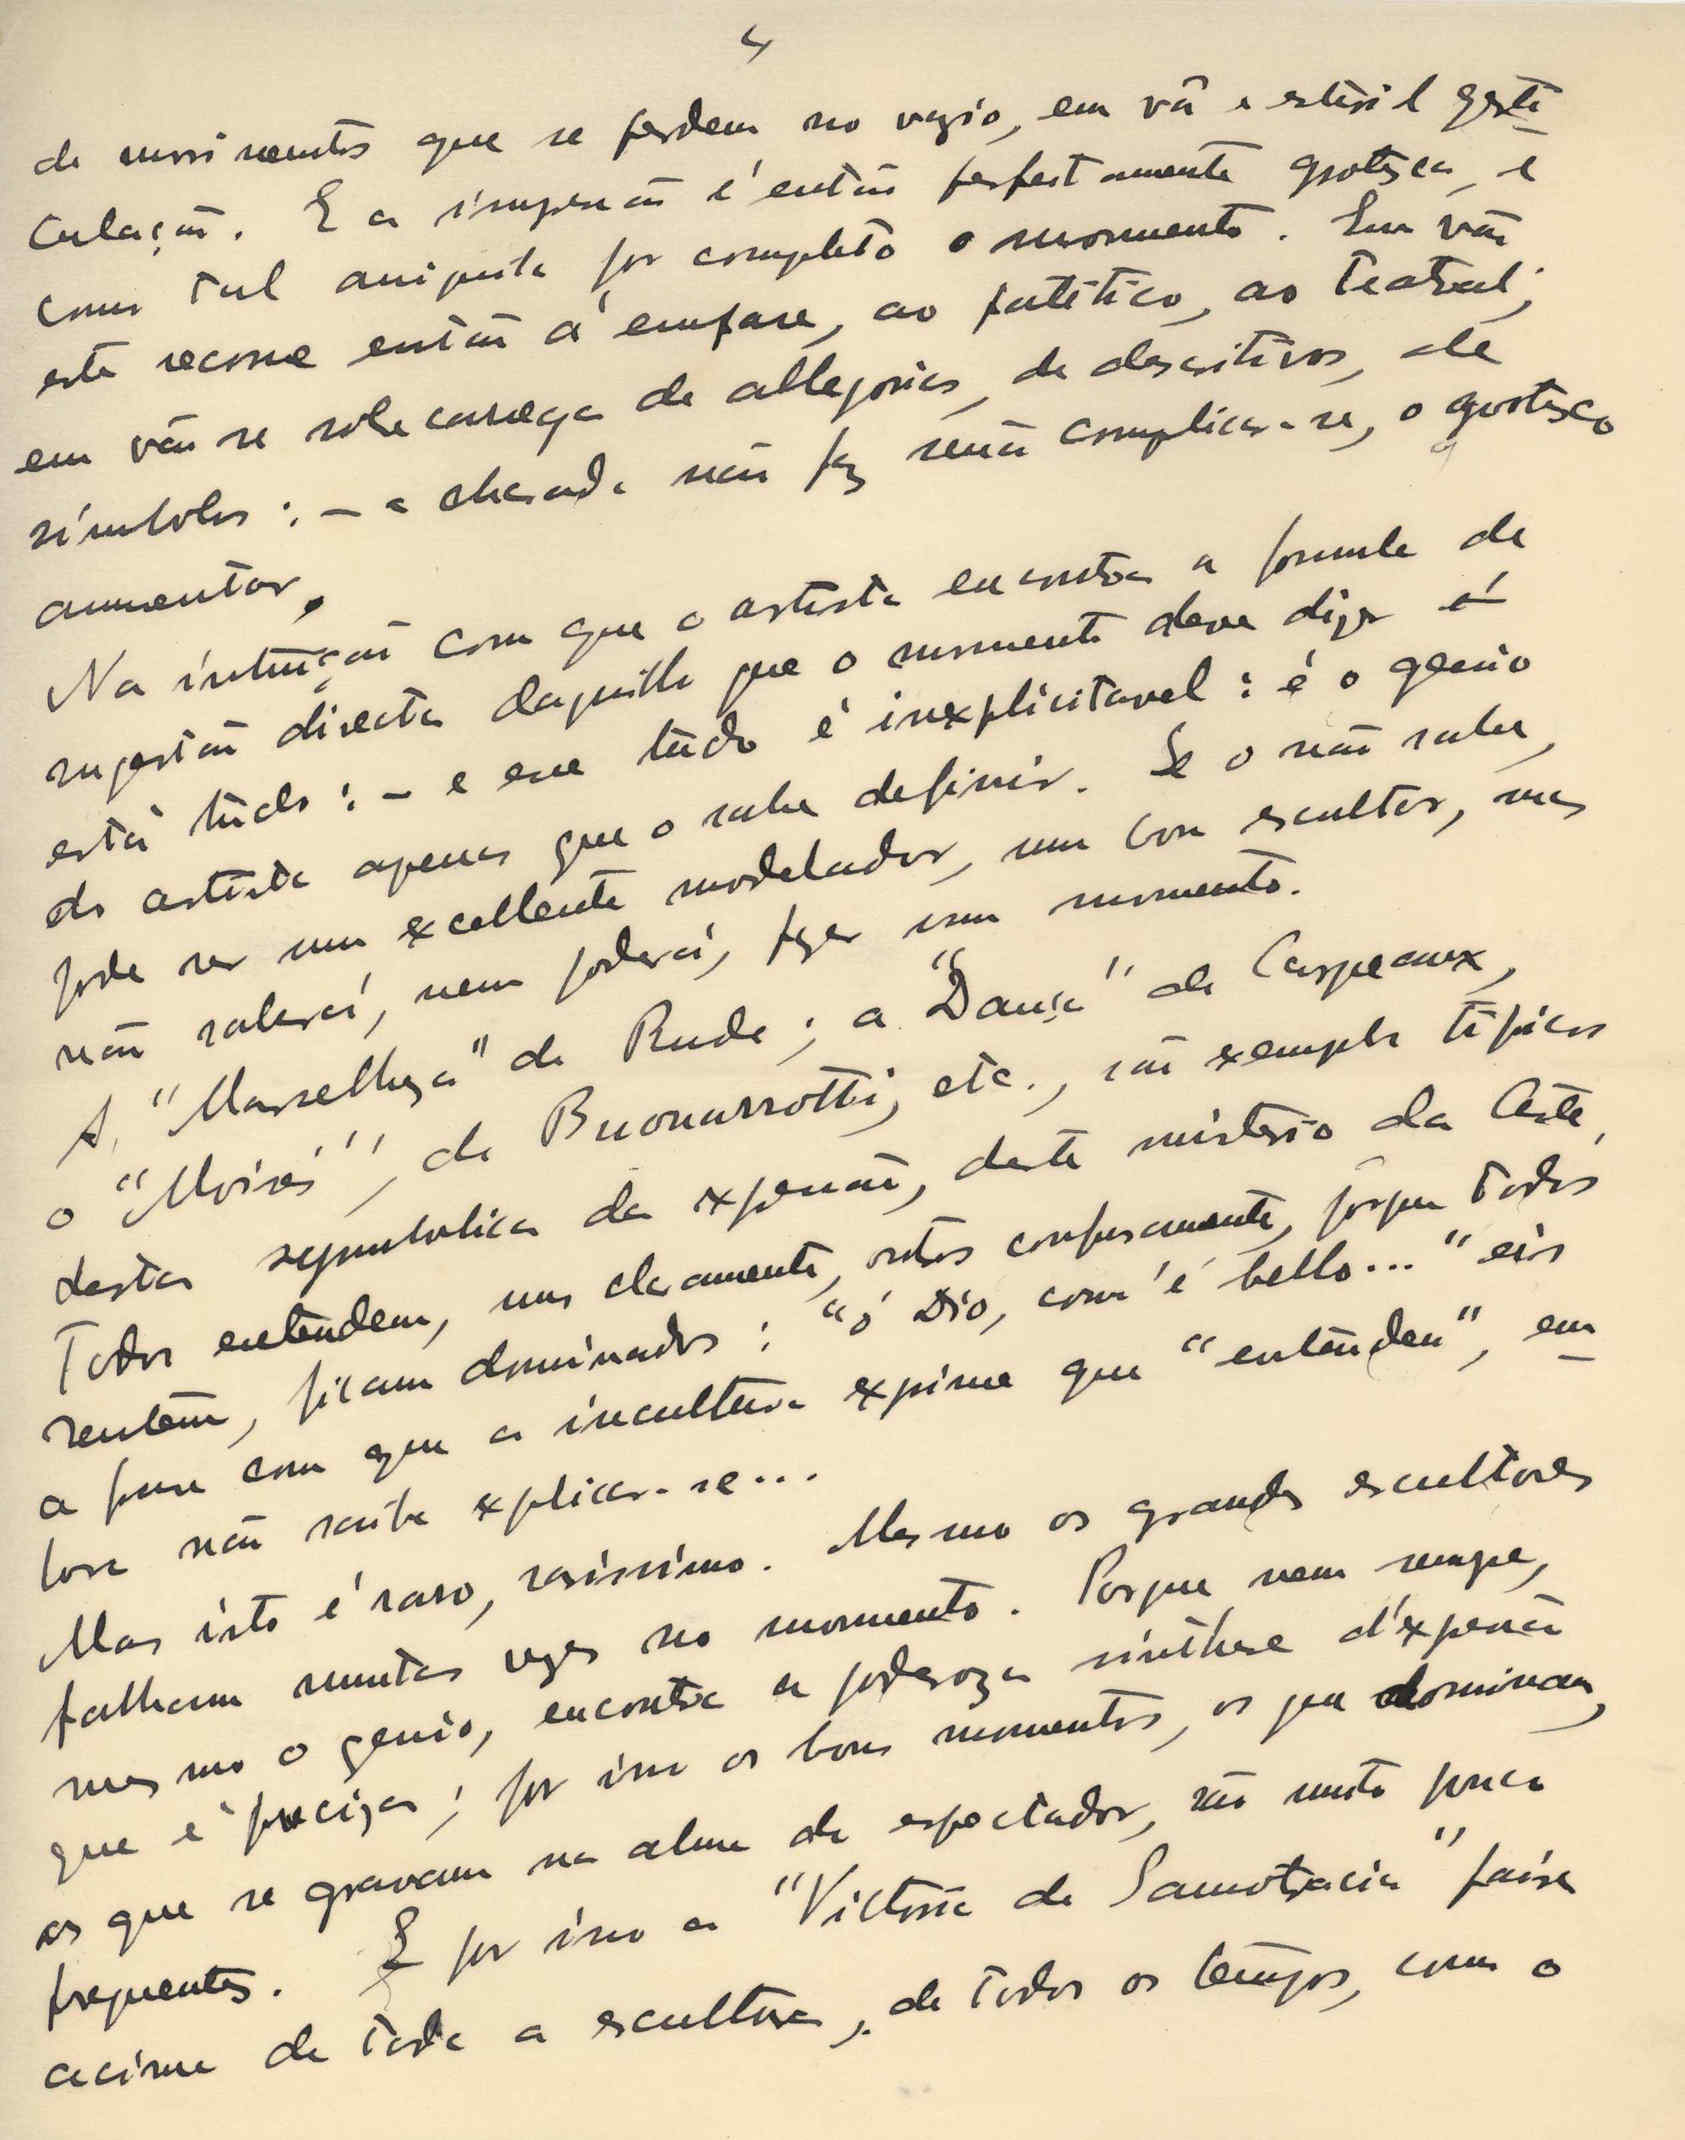 4
de movimentos que se perdem no vazio, em vã e esteril gesti-
culação. E a impressão é então perfeitamente grotesca, e
como tal aniquila por completo o monumento. Em vão
este recorre então á emfase, ao patético, ao teatral;
em vão se sobrecarrega de allegorias, de descritivos, de
símbolos: – a charada não faz senão complicar-se, o grotesco
aumentar.
Na intuição com que o artista encontra a formula da
sugestão directa daquillo que o monumento deve dizer
está tudo: – e esse tudo é inexplicitavel: é o genio
do artista apenas que o sabe definir. Se o não sabe,
pode ser um excellente modelador, um bom escultor, mas
não saberá, nem poderá, fazer um monumento.
A "Marselheza" de Rude; a "Dança" de Carpeaux,
o "Moisés", de Buonarrotti, etc., são exemplos típicos
desta symbolica da expressão, deste misterio da Arte,
Todos entendem, uns claramente, outros confusamente, porque todos
sentem, ficam dominados: "ó Dio, com'é bello..." eis
a frase com que a incultura exprime que "entendeu", em-
bora não saiba explicar-se...
Mas isto é raro, rarissimo. Mesmo os grandes escultores
falham muitas vezes no monumento. Porque nem sempre,
mesmo o genio, encontra a poderoza sinthese d'expressão
que é preciza; por isso os bons monumentos, os que dominam,
os que se gravam na alma do espectador, são muito pouco
frequentes. E por isso a "Victoria de Samotracia" paira
acima de toda a escultura, de todos os tempos, como o